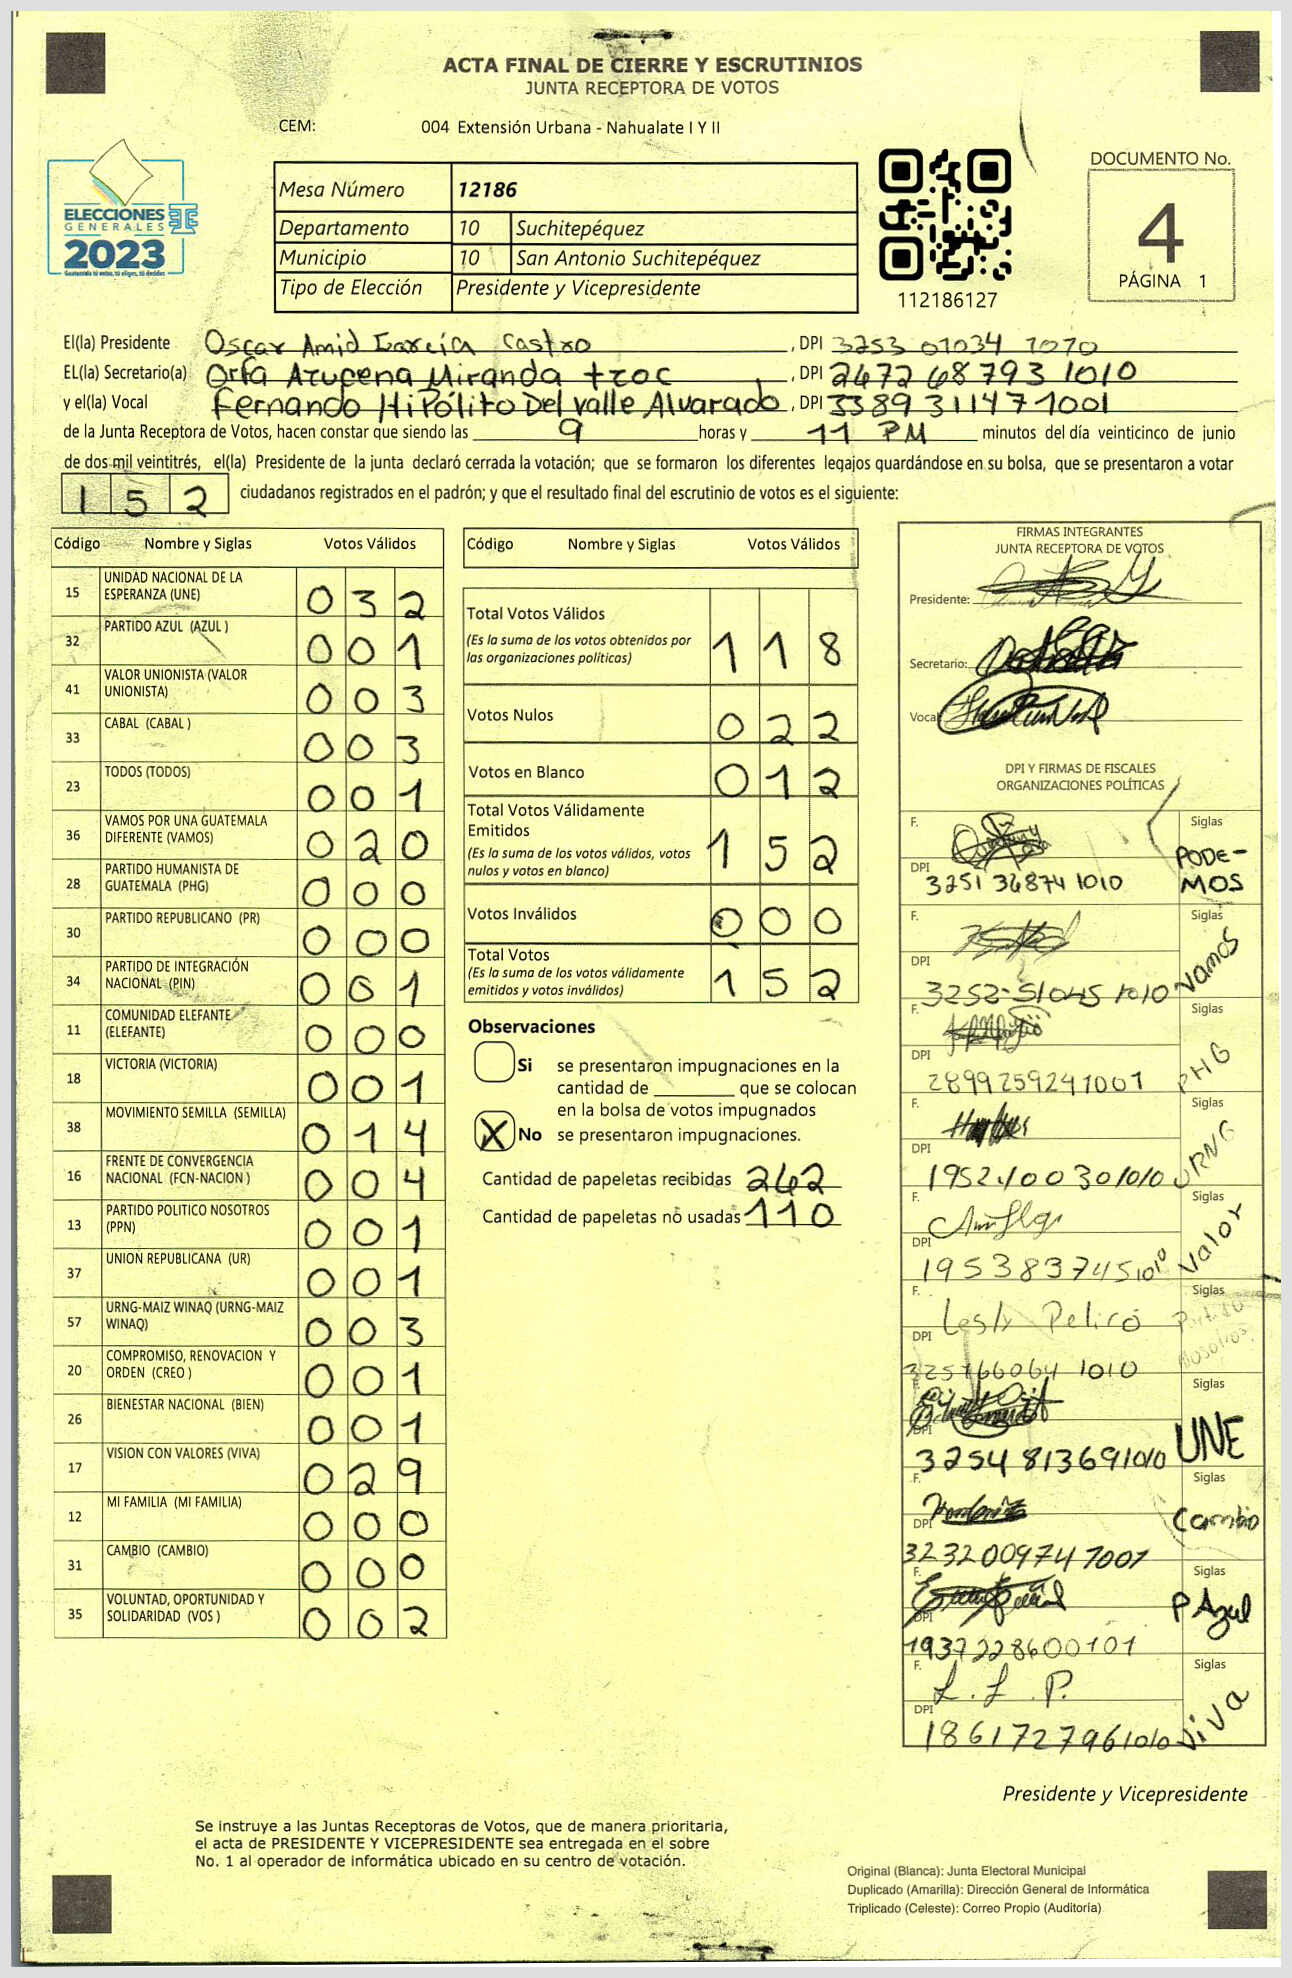 ACTA FINAL DE CIERRE Y ESCRUTINIOS
JUNTA RECEPTORA DE VOTOS
CEM: 004 Extensión Urbana - Nahualate I Y II
ELECCIONES
GENERALES
2023
Guatemala tú eres, tú eliges, tú decides
Mesa Número 12186
Departamento 10 Suchitepéquez
Municipio 10 San Antonio Suchitepéquez
Tipo de Elección Presidente y Vicepresidente
112186127
DOCUMENTO No.
4
PÁGINA 1
El(la) Presidente Oscar Amid García Castro, DPI 3253 01034 1010
EL(la) Secretario(a) Orfa Azucena Miranda, DPI 2472 68793 1010
y el(la) Vocal Fernando Hipólito Del Valle Alvarado, DPI 3389 31147 1001
de la Junta Receptora de Votos, hacen constar que siendo las 9 horas y 11 PM minutos del día veinticinco de junio
de dos mil veintitrés, el(la) Presidente de la junta declaró cerrada la votación; que se formaron los diferentes legajos guardándose en su bolsa, que se presentaron a votar
152 ciudadanos registrados en el padrón; y que el resultado final del escrutinio de votos es el siguiente:
Código Nombre y Siglas Votos Válidos
15 UNIDAD NACIONAL DE LA ESPERANZA (UNE) 032
32 PARTIDO AZUL (AZUL ) 001
41 VALOR UNIONISTA (VALOR UNIONISTA) 003
33 CABAL (CABAL ) 003
23 TODOS (TODOS) 001
36 VAMOS POR UNA GUATEMALA DIFERENTE (VAMOS) 020
28 PARTIDO HUMANISTA DE GUATEMALA (PHG) 000
30 PARTIDO REPUBLICANO (PR) 000
34 PARTIDO DE INTEGRACIÓN NACIONAL (PIN) 001
11 COMUNIDAD ELEFANTE (ELEFANTE) 000
18 VICTORIA (VICTORIA) 001
38 MOVIMIENTO SEMILLA (SEMILLA) 014
16 FRENTE DE CONVERGENCIA NACIONAL (FCN-NACION ) 004
13 PARTIDO POLITICO NOSOTROS (PPN) 001
37 UNION REPUBLICANA (UR) 001
57 URNG-MAIZ WINAQ (URNG-MAIZ WINAQ) 003
20 COMPROMISO, RENOVACION Y ORDEN (CREO ) 001
26 BIENESTAR NACIONAL (BIEN) 001
17 VISION CON VALORES (VIVA) 029
12 MI FAMILIA (MI FAMILIA) 000
31 CAMBIO (CAMBIO) 000
35 VOLUNTAD, OPORTUNIDAD Y SOLIDARIDAD (VOS ) 002
Código Nombre y Siglas Votos Válidos
Total Votos Válidos 118
(Es la suma de los votos obtenidos por
las organizaciones políticas)
Votos Nulos 022
Votos en Blanco 012
Total Votos Válidamente
Emitidos 152
(Es la suma de los votos válidos, votos
nulos y votos en blanco)
Votos Inválidos 000
Total Votos 152
(Es la suma de los votos válidamente
emitidos y votos inválidos)
Observaciones
Si se presentaron impugnaciones en la
cantidad de ________ que se colocan
en la bolsa de votos impugnados
X No se presentaron impugnaciones.
Cantidad de papeletas recibidas 262
Cantidad de papeletas no usadas 110
FIRMAS INTEGRANTES
JUNTA RECEPTORA DE VOTOS
Presidente:
Secretario:
Vocal
DPI Y FIRMAS DE FISCALES
ORGANIZACIONES POLÍTICAS
F. Siglas
DPI 3251 36874 1010 PODE-MOS
F. Siglas
DPI 3252-51045 1010 Vamos
F. Siglas
DPI 2899259241001 PHG
F. Siglas
DPI 1952400301010 URNG
F. Siglas
DPI 1953837451010 Valor
F. Lesly Pelicó Siglas
DPI 325766064 1010 Partido Nosotros
F. Siglas
DPI 3254 813691010 UNE
F. Siglas
DPI 3232009747001 Cambio
F. Siglas
DPI 1937228600101 P Azul
F. L. L. P. Siglas
DPI 1861727961010 Viva
Presidente y Vicepresidente
Se instruye a las Juntas Receptoras de Votos, que de manera prioritaria,
el acta de PRESIDENTE Y VICEPRESIDENTE sea entregada en el sobre
No. 1 al operador de informática ubicado en su centro de votación.
Original (Blanca): Junta Electoral Municipal
Duplicado (Amarilla): Dirección General de Informática
Triplicado (Celeste): Correo Propio (Auditoría)